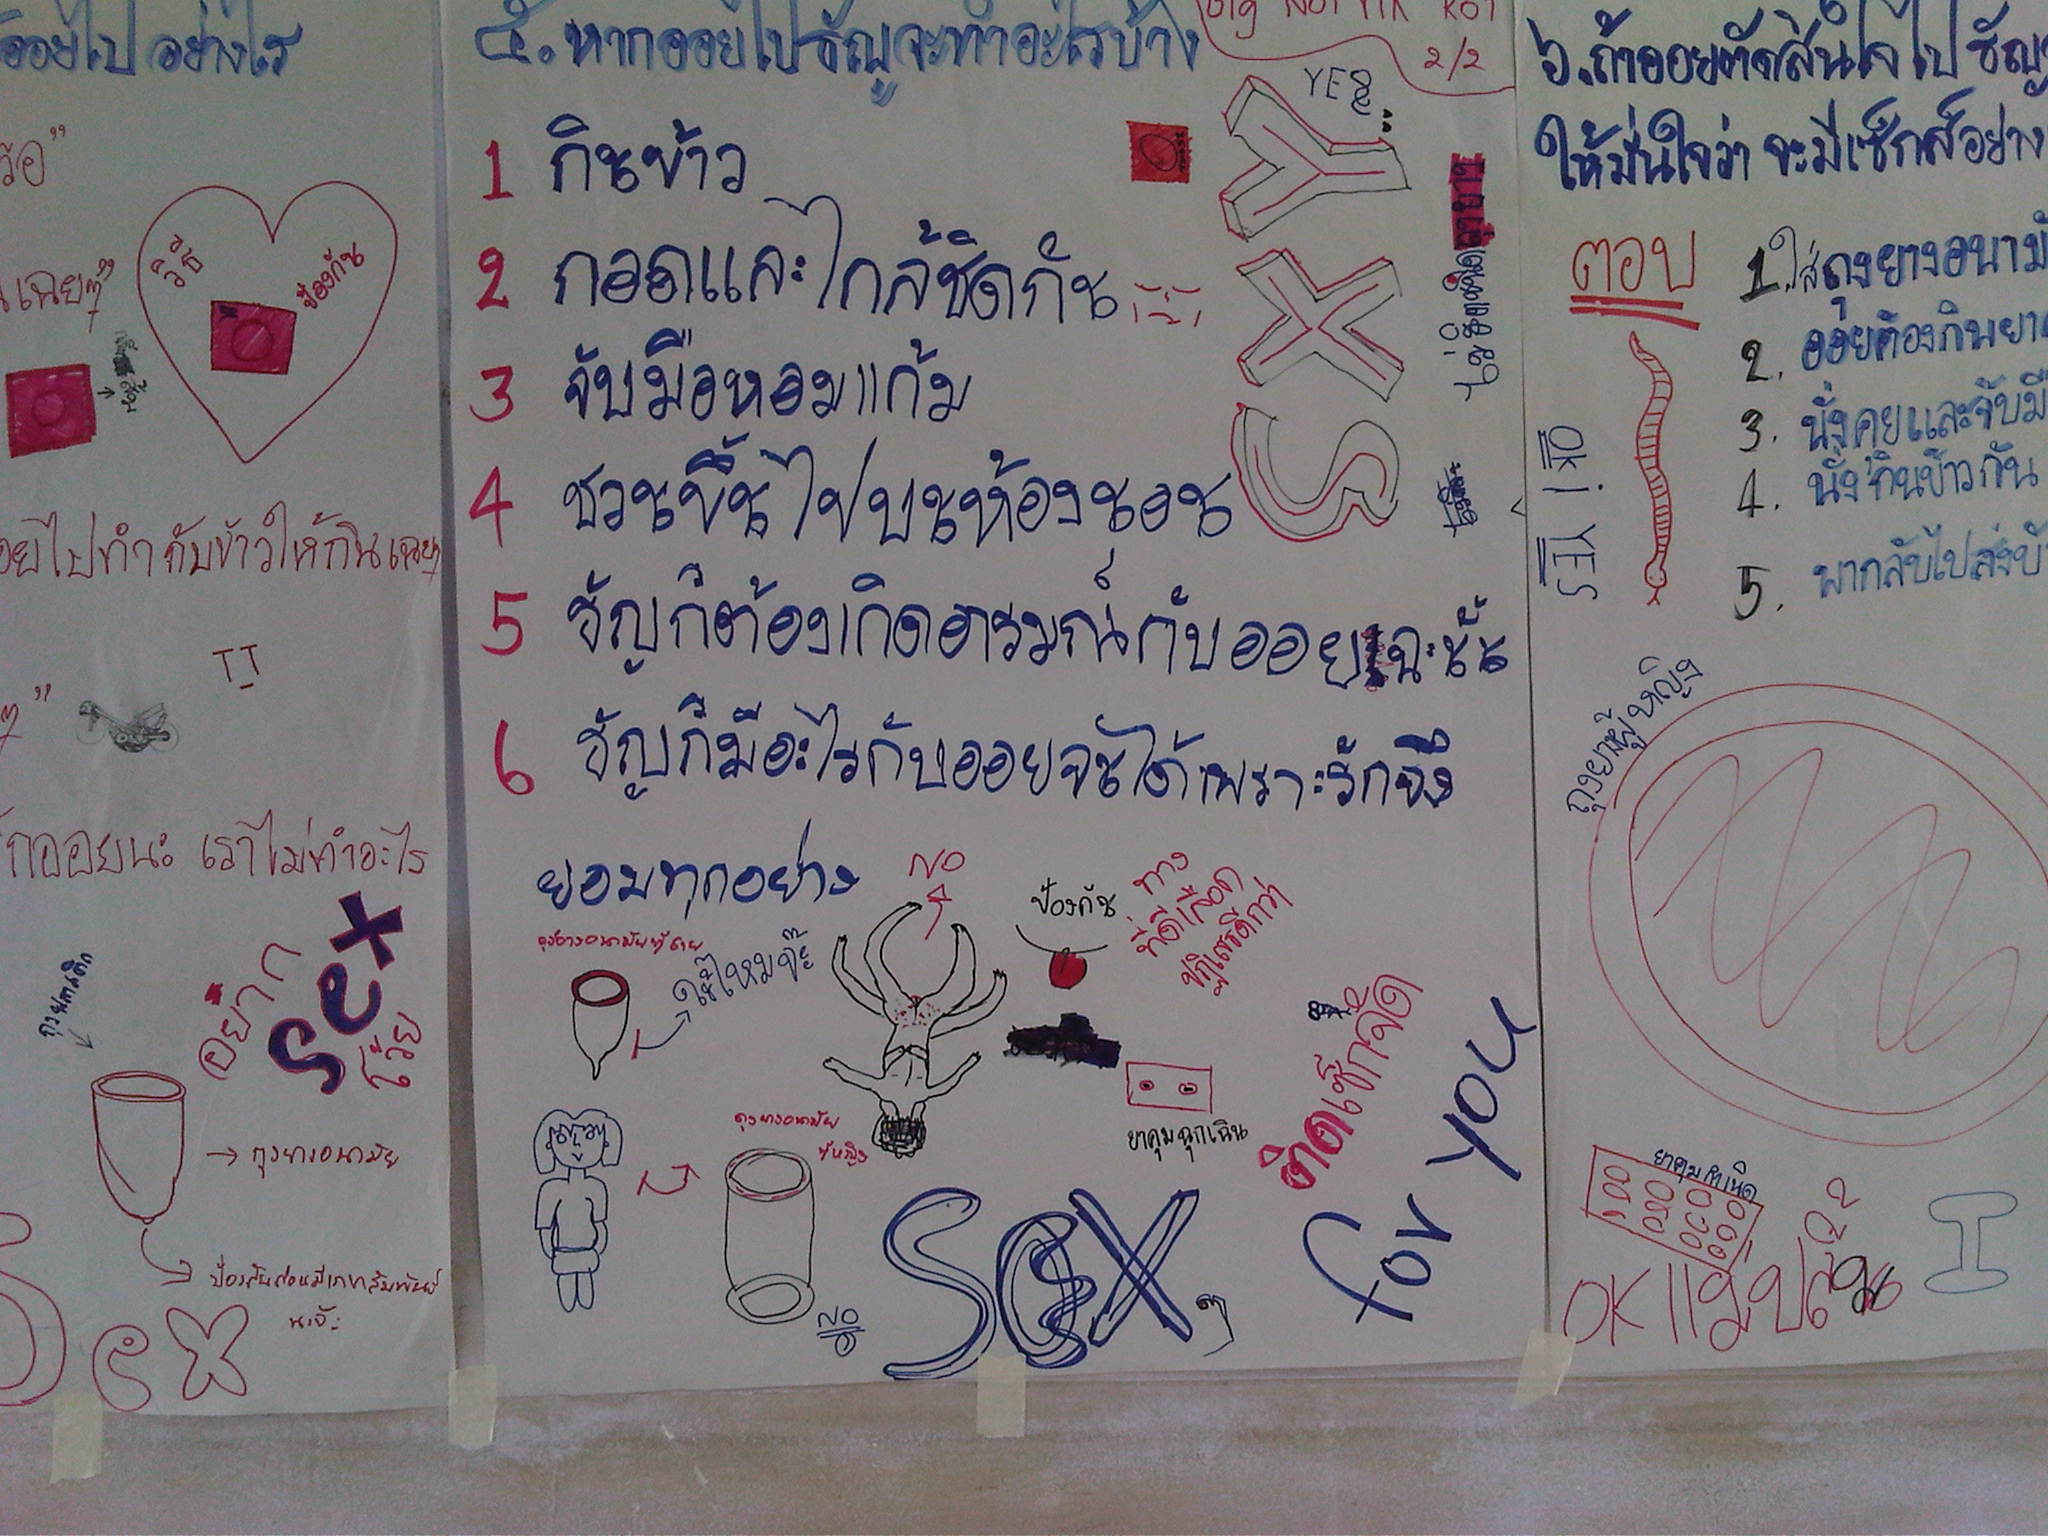 ออยไป อย่างไร
วิธี
ป้องกัน
ไปทำกับข้าวให้กินเฉยๆ
TT
ออยนะ เราไม่ทำอะไร
อยาก
sex
ด้วย
→ ถุงยางอนามัย
ป้องกันก่อนมีเพศสัมพันธ์
นะจ๊ะ
Sex
๕. หากออยไป ธัญจะทำอะไรบ้าง
2/2
1 กินข้าว
2 กอดและใกล้ชิดกัน
3 จับมือหอมแก้ม
4 ชวนขึ้นไปบนห้องนอน
5 ธัญก็ต้องเกิดอารมณ์กับออยฉะนั้น
6 ธัญก็มีอะไรกับออยจนได้เพราะรักจึง
ยอมทุกอย่าง
YES
SXY
NO
ป้องกัน
ทาง
ที่ดีเลือด
ปฏิเสธดีกว่า
ถุงยางอนามัยผู้ชาย
ถุงยางอนามัย
ผู้หญิง
ยาคุมฉุกเฉิน
ติดเซ็กจัด
NO
SEX
for you
๖. ถ้าออยตัดสินใจไป ธัญ
ให้มั่นใจว่า จะมีเซ็กส์อย่าง
ตอบ
1. ใส่ถุงยางอนามัย
2. ออยต้องกินยา
3. นั่งคุยและจับมือ
4. นั่งกินข้าวกัน
5. พากลับไปส่งบ้าน
OK! YES
ถุงยางผู้หญิง
ยาคุมกำเนิด
I